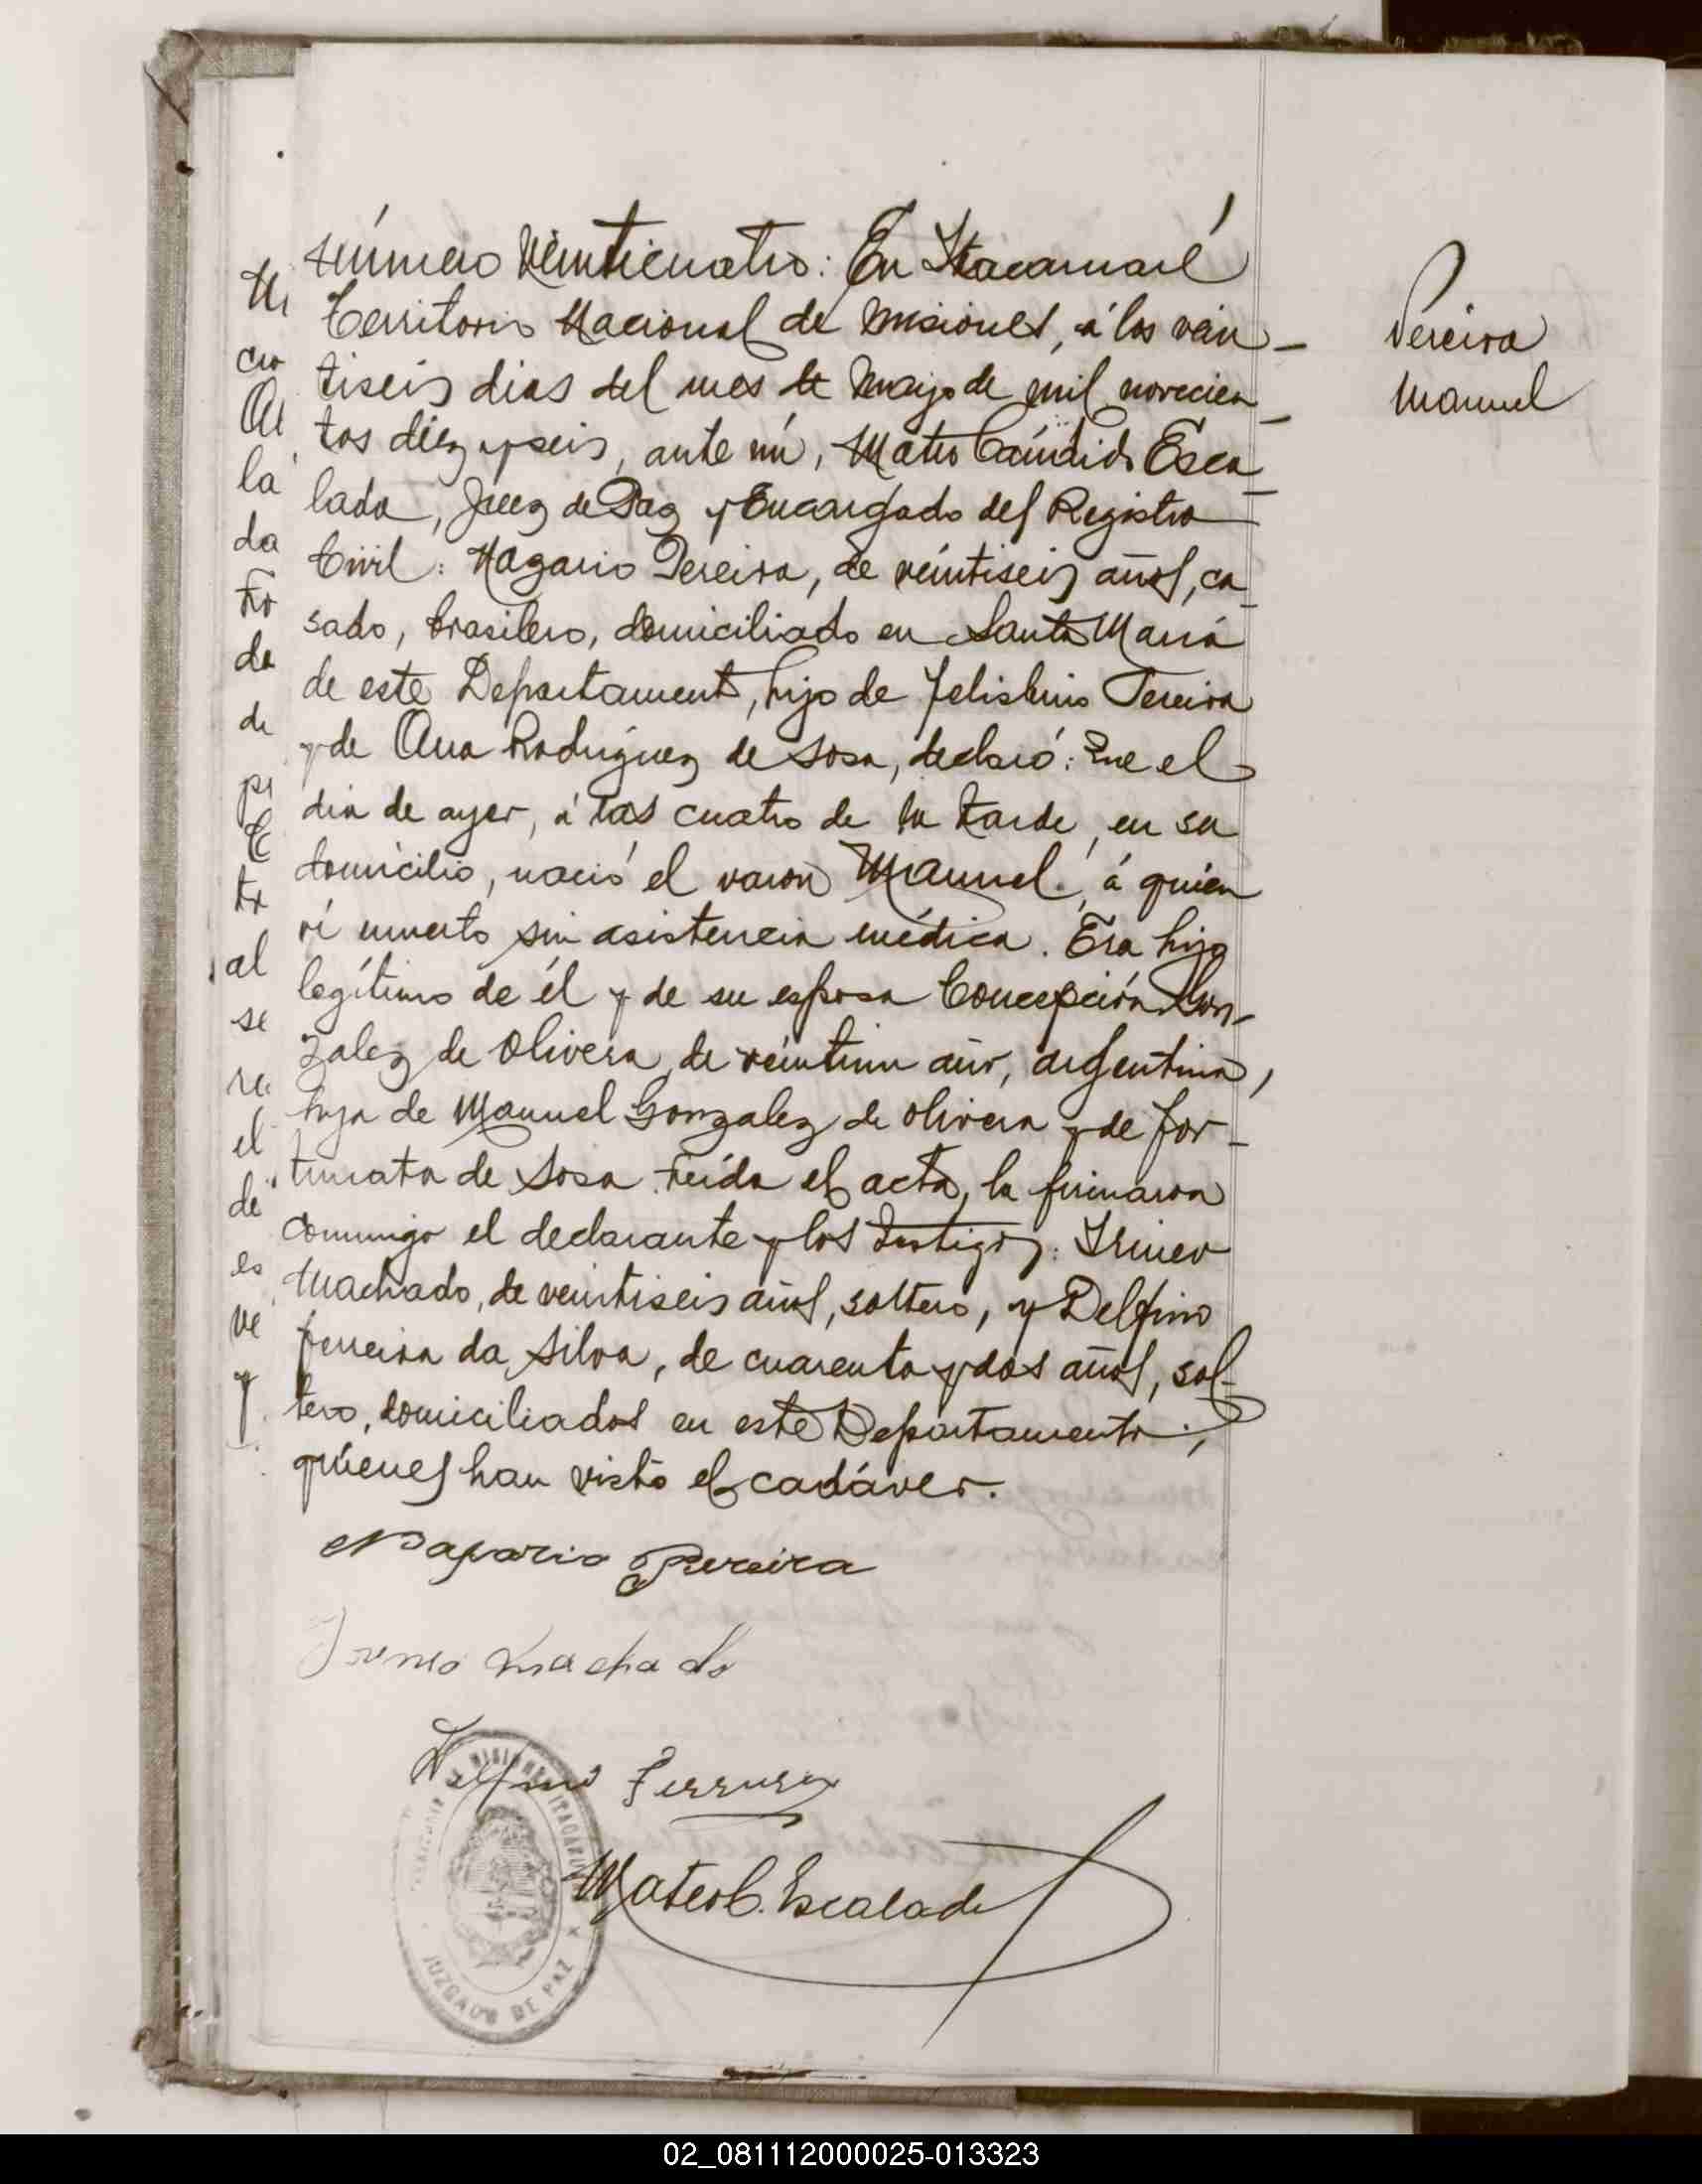 Número Veinticuatro: En Itacaruaré
Territorio Nacional de Misiones, á los vein-
tiseis dias del mes de Mayo de mil novecien-
tos diez y seis, ante mí, Mateo Cándido Esca-
lada, Juez de Paz y Encargado del Registro
Civil: Nazario Pereira, de veintiseis años, ca-
sado, brasilero, domiciliado en Santa María
de este Departamento, hijo de Felisbino Pereira
y de Ana Rodríguez de Sosa, declaró: Que el
dia de ayer, á las cuatro de la tarde, en su
domicilio, nació el varon Manuel, á quien
ví muerto sin asistencia médica. Era hijo
legítimo de él y de su esposa Concepción Gon-
zalez de Olivera, de veintiun año, argentina,
hija de Manuel Gonzalez de Olivera y de For-
tunata de Sosa. Leída el acta, la firmaron
conmigo el declarante y los testigos: Irineo
Machado, de veintiseis años, soltero, y Delfino
Ferreira da Silva, de cuarenta y dos años, sol-
tero, domiciliados en este Departamento,
quienes han visto el cadáver.
Pereira
Manuel
cio
la
da
de
al
se
el
de
es
ve
y
Nazario Pereira
Irineo Machado
Delfino Ferreira
Mateo C. Escalada
TERRITORIO DE MISIONES ITACARUARÉ
JUZGADO DE PAZ
02_081112000025-013323